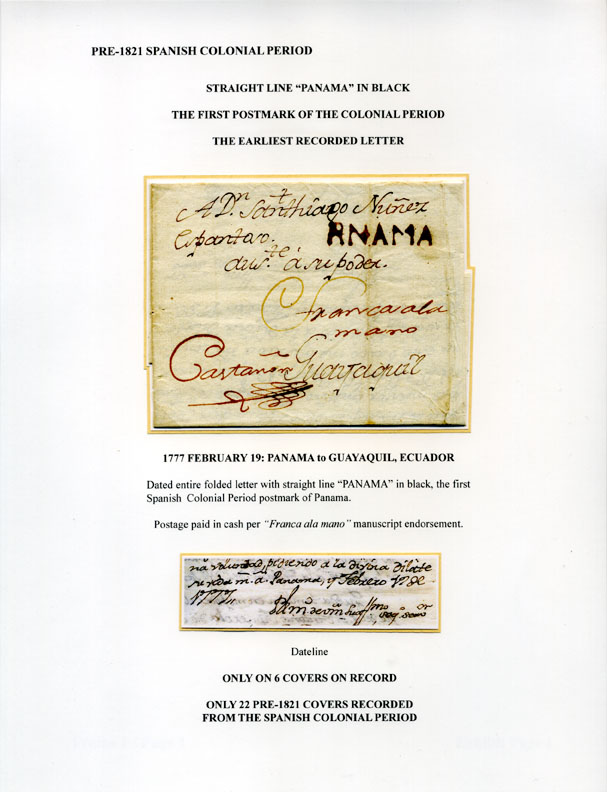 PRE-1821 SPANISH COLONIAL PERIOD
STRAIGHT LINE “PANAMA” IN BLACK
THE FIRST POSTMARK OF THE COLONIAL PERIOD
THE EARLIEST RECORDED LETTER
A Dn Santhiago Nuñez
PANAMA
a su poder.
Franca ala
mano
Castañon Guayaquil
1777 FEBRUARY 19: PANAMA to GUAYAQUIL, ECUADOR
Dated entire folded letter with straight line “PANAMA” in black, the first
Spanish Colonial Period postmark of Panama.
Postage paid in cash per “Franca ala mano” manuscript endorsement.
na voluntad, pidiendo a la
Panama, y Febrero
1777,
Dateline
ONLY ON 6 COVERS ON RECORD
ONLY 22 PRE-1821 COVERS RECORDED
FROM THE SPANISH COLONIAL PERIOD